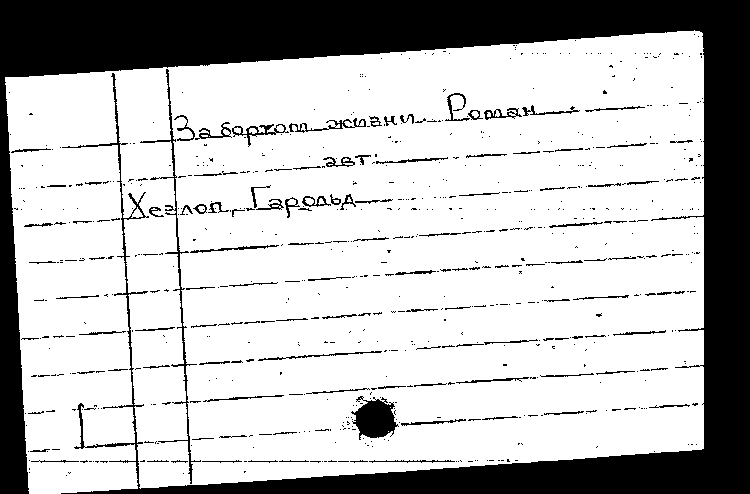 За бортом жизни. Роман.
авт:
Хеглоп, Гарольд